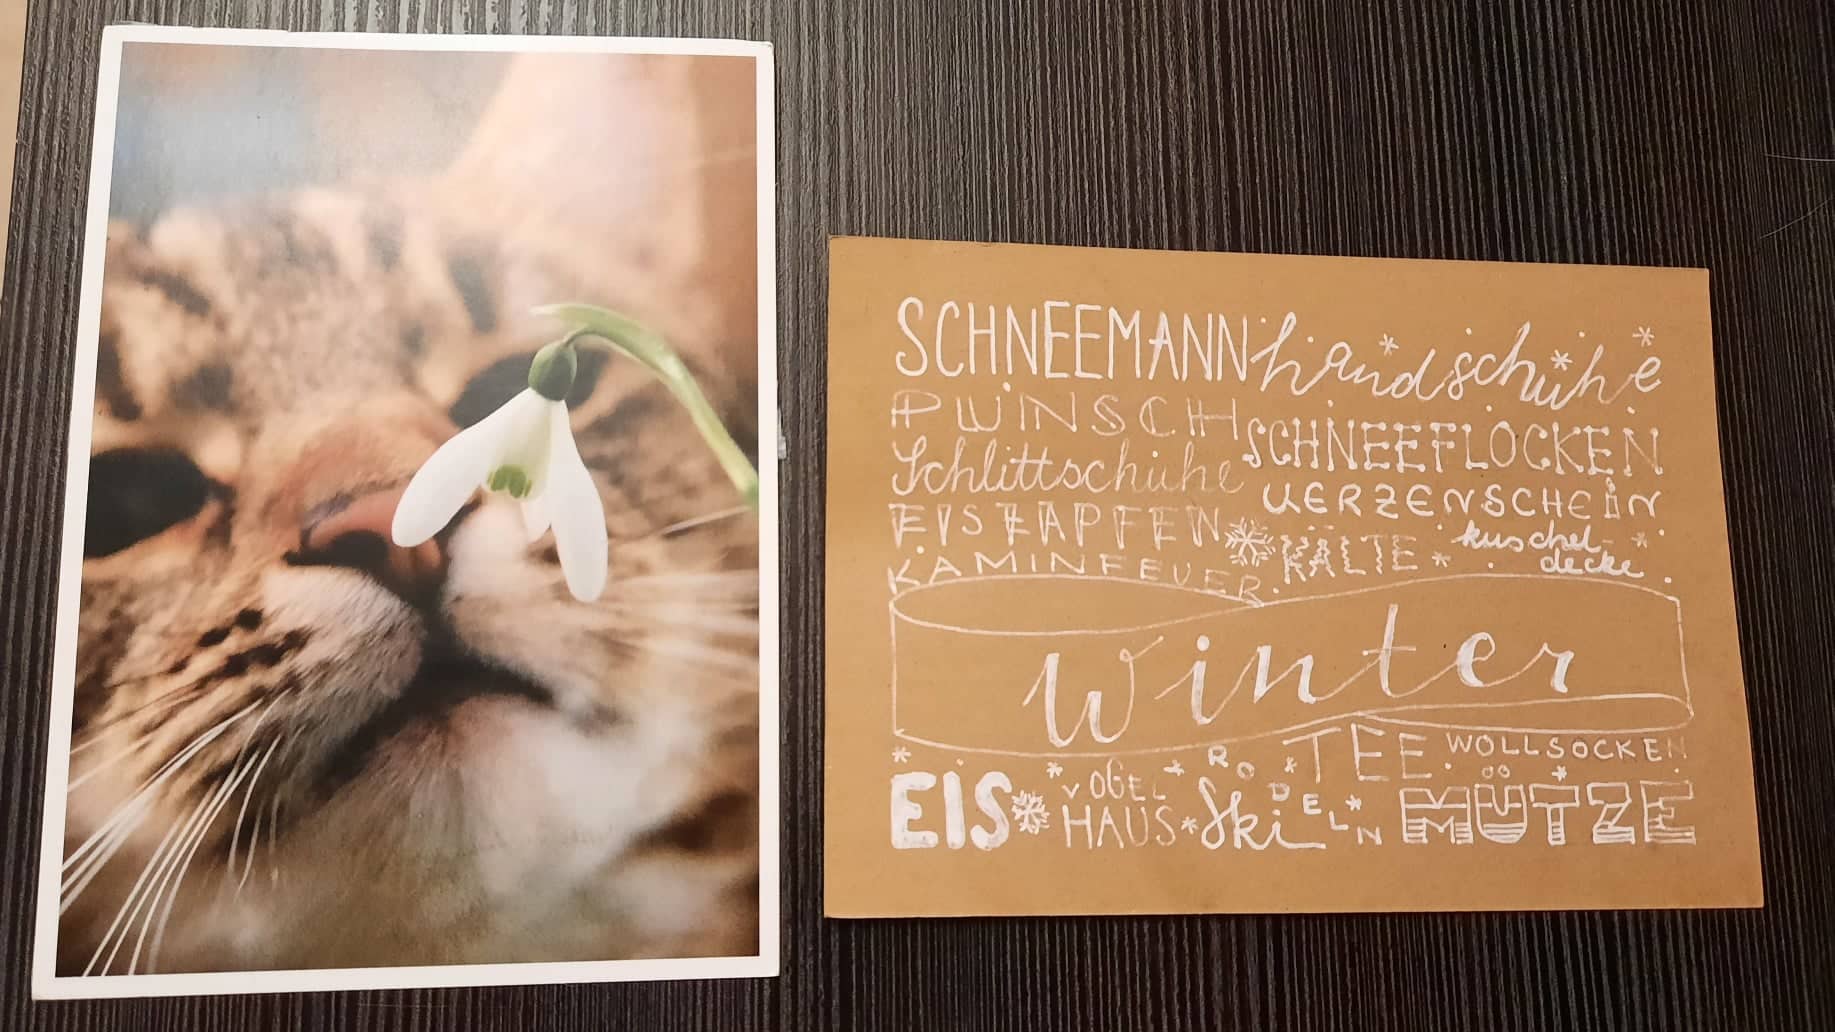 SCHNEEMANN handschuhe
PUNSCH SCHNEEFLOCKEN
Schlittschuhe KERZENSCHEIN
EISZAPFEN KÄLTE kuschel-
decke
KAMINFEUER
Winter
EIS VOGEL
HAUS Ski RODELN TEE WOLLSOCKEN
MÜTZE